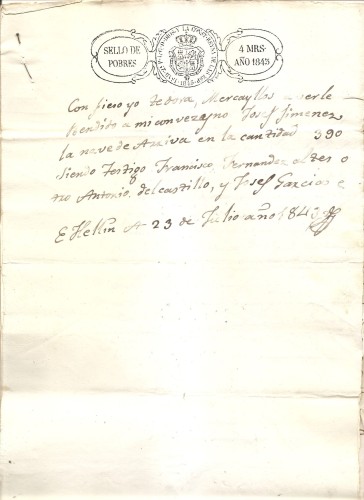 SELLO DE
POBRES
4 MRS.
AÑO 1843
Confieso yo Mercayllos a berle
bendido a mi convezyno Josef Jimenez
la nave de Ariva en la cantidad 390
siendo testigo Francisco Fernandez el tes o
tro Antonio delcastillo, y Josef Garcia
E Hellin A 23 de Julio año 1843